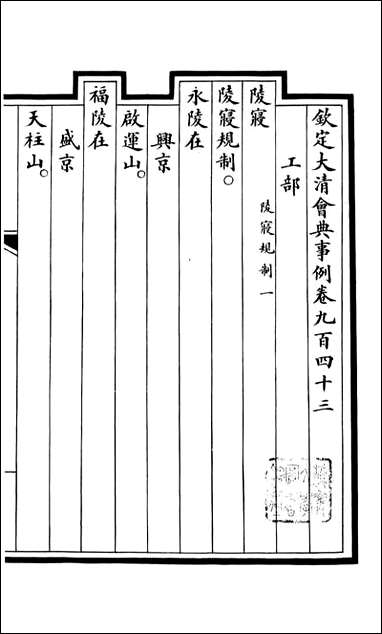 欽定大清會典事例卷九百四十三
工部
陵寢規制一
陵寢
陵寢規制○
永陵在
興京
啟運山○
福陵在
盛京
天柱山○